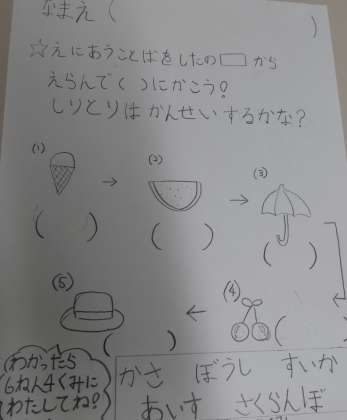 なまえ（　　　）
☆えにあうことばをしたの□から
えらんで（ ）にかこう!
しりとりは かんせい するかな?
(1)
(2)
(3)
(　)
(　)
(　)
(5)
(4)
(　)
(
わかったら
6ねん4くみに
わたしてね!
かさ ぼうし すいか
あいす さくらんぼ